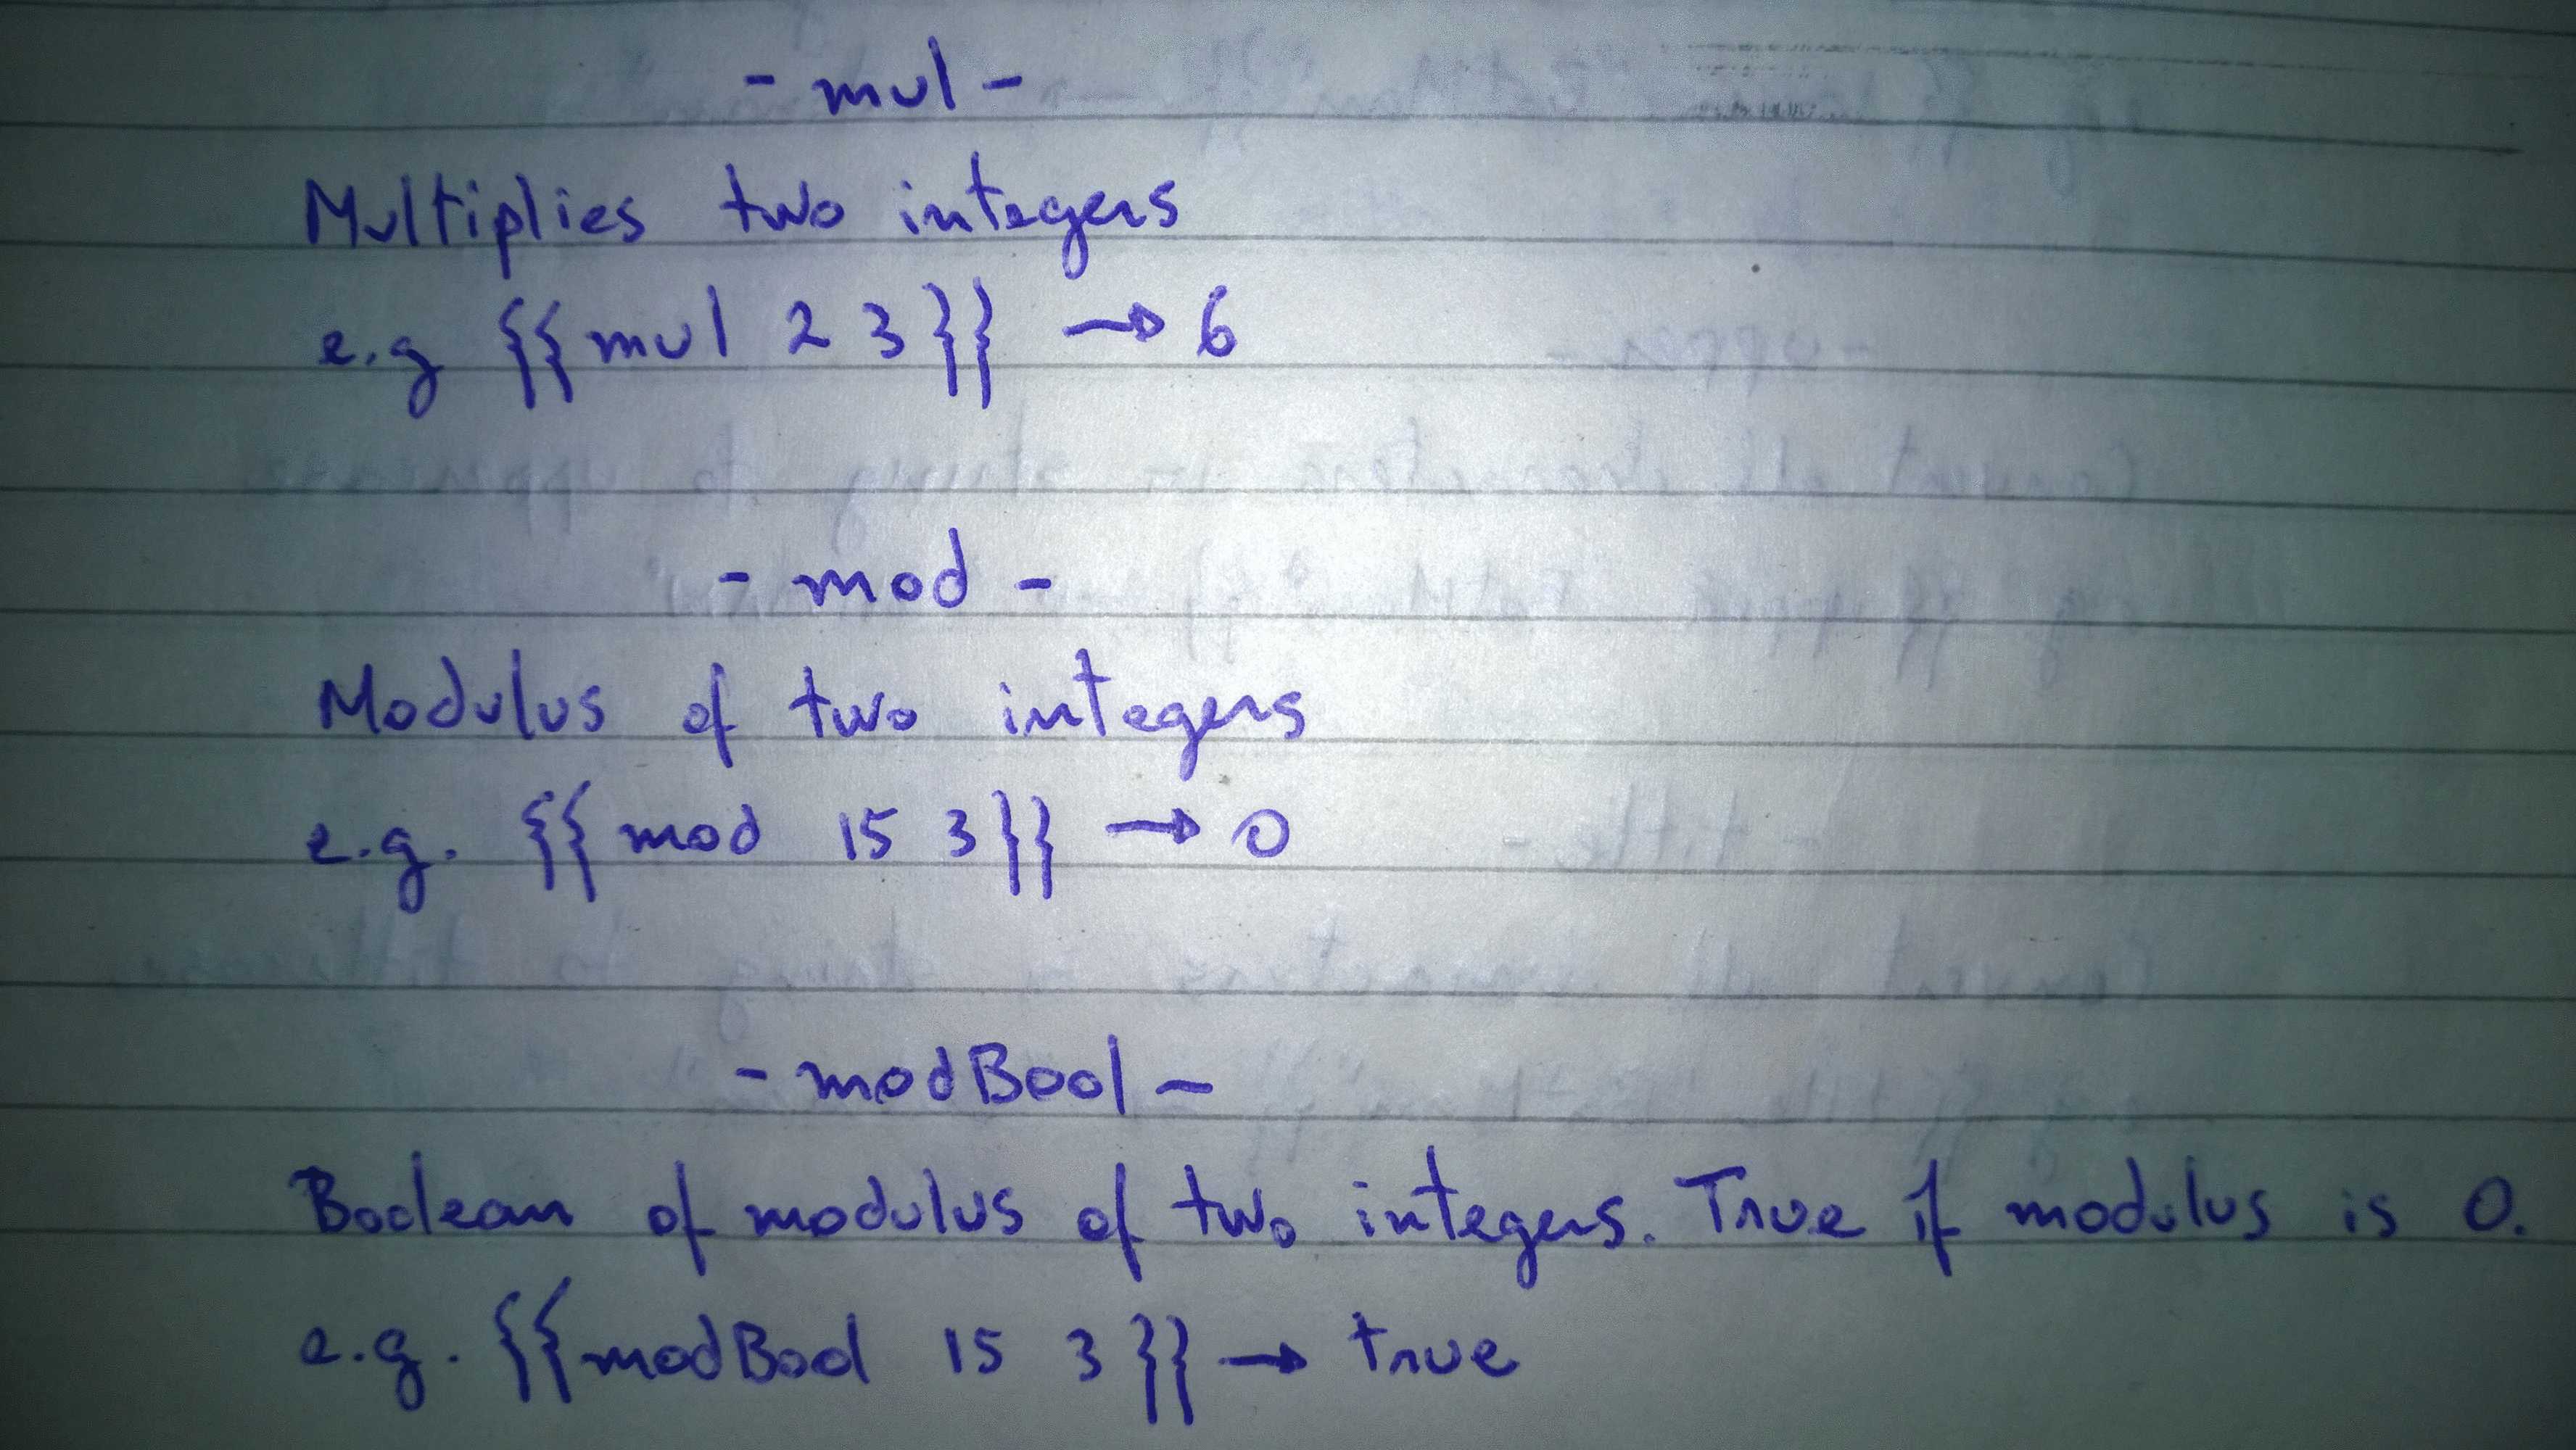 - mul -
Multiplies two integers
e.g {{mul 2 3}} → 6
- mod -
Modulus of two integers
e.g. {{mod 15 3}} → 0
- modBool -
Boolean of modulus of two integers. True if modulus is 0.
e.g. {{modBool 15 3}} → true